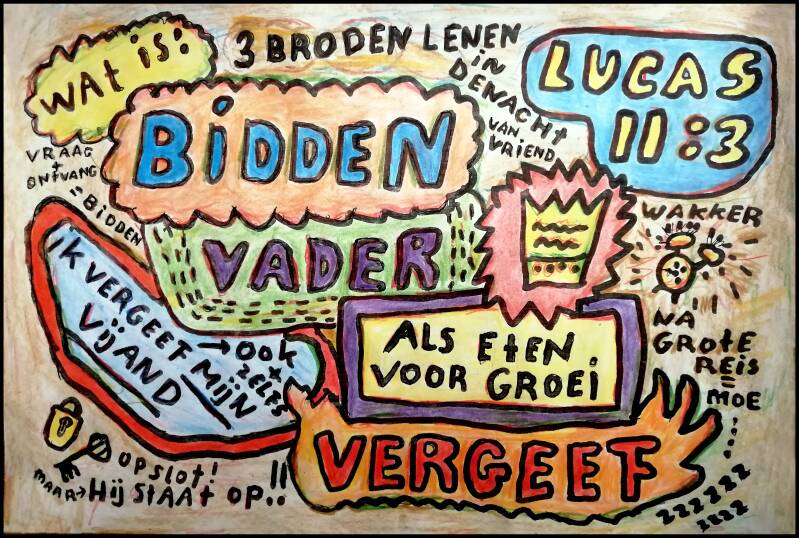 WAt is:
3 BRODEN LENEN
iN
DE NACHt
VAN
VRiEND
LUCAS
11:3
BiDDEN
VRAAG
+
ONtVANG
= BiDDEN
VADER
WAKKER
NA
GROtE
REiS
=
MOE
iK VERGEEF MijN
VijAND
→ OOK
+
ZELFS
ALS EtEN
VOOR GROEi
VERGEEF
OP SLOt!
MAAR → Hij StAAt OP!!
zzzzzz
zzzz